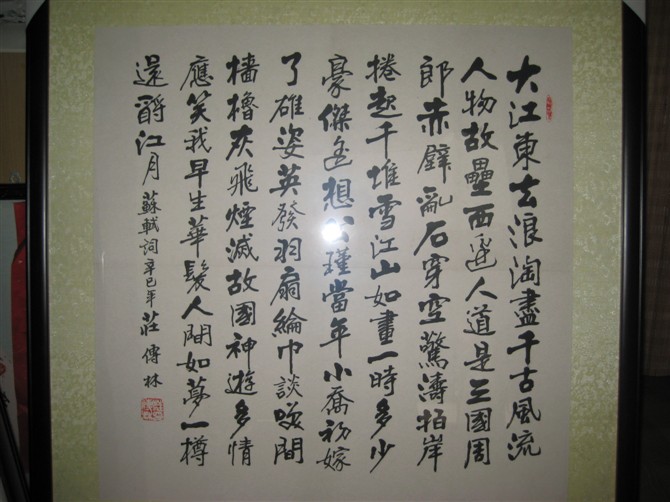 大江東去浪淘盡千古風流
人物故壘西邊人道是三國周
郎赤壁亂石穿空驚濤拍岸
捲起千堆雪江山如畫一時多少
豪傑遙想公瑾當年小喬初嫁
了雄姿英發羽扇綸巾談笑間
檣櫓灰飛煙滅故國神遊多情
應笑我早生華髮人間如夢一樽
還酹江月 蘇軾詞 辛巳年 莊傳林